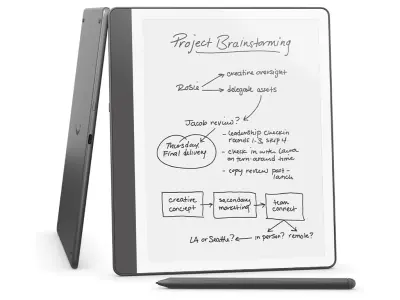 Project Brainstorming
Rosie
creative oversight
delegate assets
Jacob review?
Thursday
Final delivery
- leadership check in
rounds 1-3, step 4
- check in with Laura
on turn around time
- copy review post-
launch
creative
concept
secondary
marketing
team
connect
LA or Seattle?
in person?
remote?